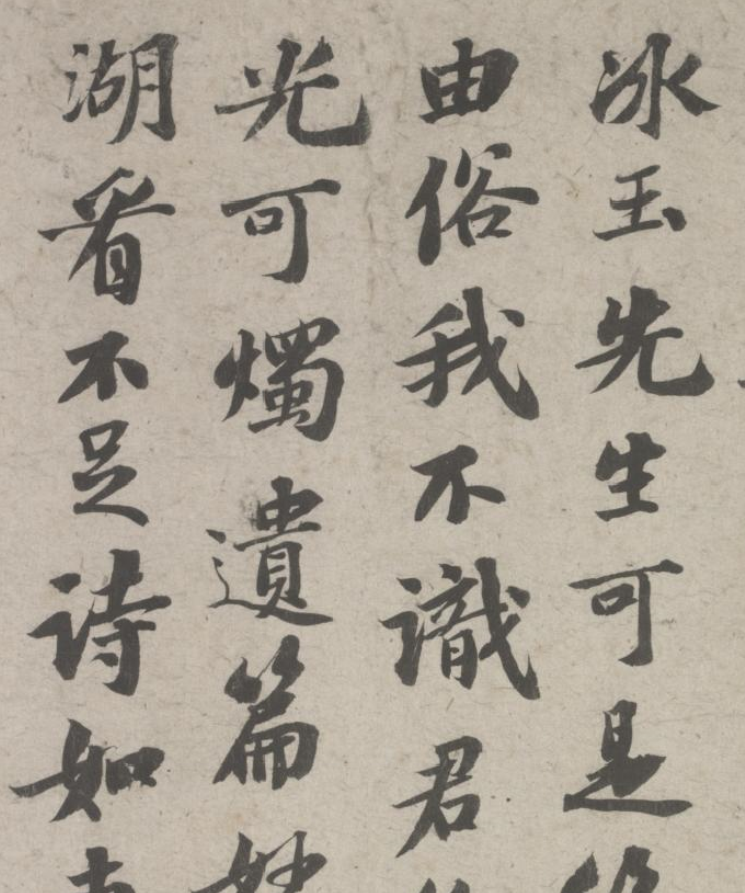 冰玉先生可是
由俗我不識君
光可燭遺篇妙
湖看不足詩如